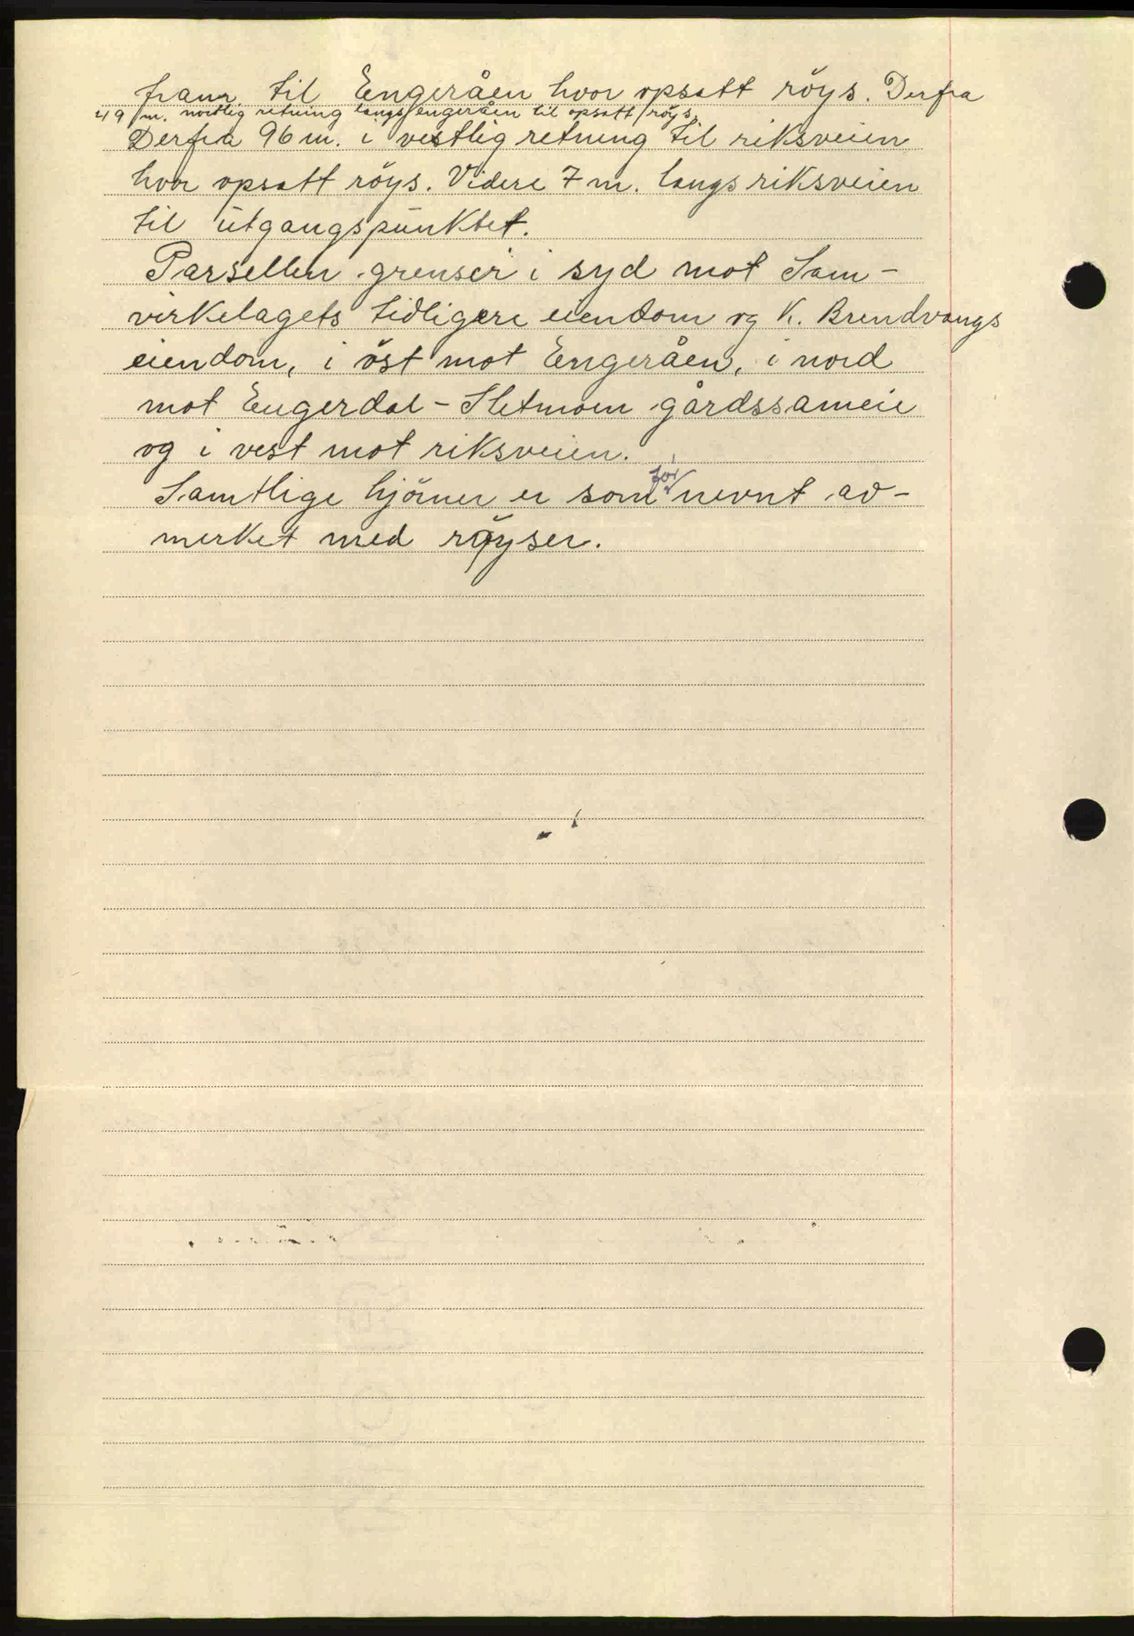 fram til Engeråen hvor opsatt röys. Derfra
49 m. nordlig retning langs engeråen til opsatt röys.
Derfra 96 m. i vestlig retning til riksveien
hvor opsatt röys. Videre 7 m. langs riksveien
til utgangspunktet.
Parsellen grenser i syd mot Sam-
virkelagets tidligere eiendom og K. Brendvangs
eiendom, i öst mot Engeråen, i nord
mot Engerdal - Sletmoen gårdssameie
og i vest mot riksveien.
Samtlige hjörner er som for nevnt av-
merket med röyser.